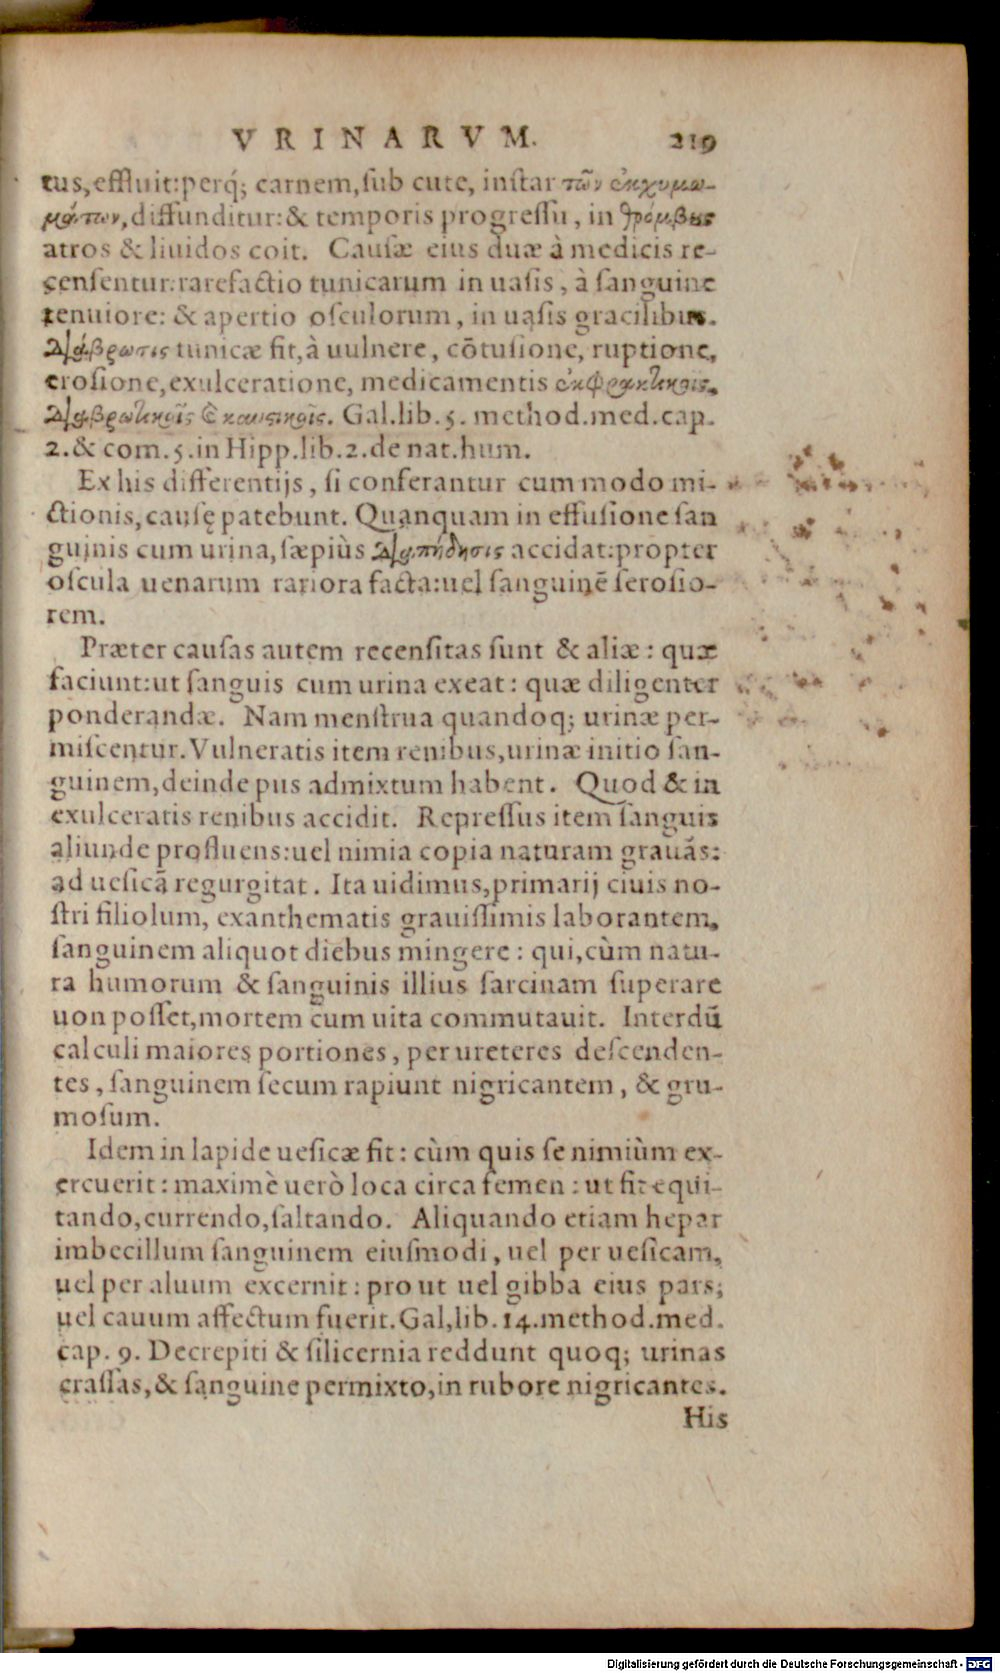 VRINARVM. 219
tus, effluit: perq́; carnem, sub cute, instar τῶν ἐκχυμω-
μάτων, diffunditur: & temporis progressu, in θρόμβους
atros & liuidos coit. Causæ eius duæ à medicis re-
censentur: rarefactio tunicarum in uasis, à sanguine
tenuiore: & apertio osculorum, in uasis gracilibus.
Διάβρωσις tunicæ fit, à uulnere, cõtusione, ruptione,
erosione, exulceratione, medicamentis ἐκφρακτικοῖς,
Διαβρωτικοῖς & καυστικοῖς. Gal. lib. 5. method. med. cap.
2. & com. 5. in Hipp. lib. 2. de nat. hum.
Ex his differentijs, si conferantur cum modo mi-
ctionis, causę patebunt. Quanquam in effusione san
guinis cum urina, sæpiùs Διαπήδησις accidat: propter
oscula uenarum rariora facta: uel sanguinẽ serosio-
rem.
Præter causas autem recensitas sunt & aliæ: quæ
faciunt: ut sanguis cum urina exeat: quæ diligenter
ponderandæ. Nam menstrua quandoq; urinæ per-
miscentur. Vulneratis item renibus, urinæ initio san-
guinem, deinde pus admixtum habent. Quod & in
exulceratis renibus accidit. Repressus item sanguis
aliunde profluens: uel nimia copia naturam grauãs:
ad uesicã regurgitat. Ita uidimus, primarij ciuis no-
stri filiolum, exanthematis grauissimis laborantem,
sanguinem aliquot diebus mingere: qui, cùm natu-
ra humorum & sanguinis illius sarcinam superare
uon posset, mortem cum uita commutauit. Interdũ
calculi maiores portiones, per ureteres descenden-
tes, sanguinem secum rapiunt nigricantem, & gru-
mosum.
Idem in lapide uesicæ fit: cùm quis se nimiùm ex-
ercuerit: maximè uerò loca circa femen: ut fit equi-
tando, currendo, saltando. Aliquando etiam hepar
imbecillum sanguinem eiusmodi, uel per uesicam,
uel per aluum excernit: pro ut uel gibba eius pars;
uel cauum affectum fuerit. Gal, lib. 14. method. med.
cap. 9. Decrepiti & silicernia reddunt quoq; urinas
crassas, & sanguine permixto, in rubore nigricantes.
His
Digitalisierung gefördert durch die Deutsche Forschungsgemeinschaft - DFG